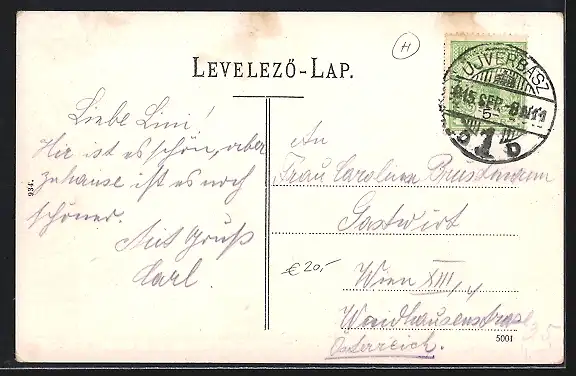 H
LEVELEZŐ-LAP.
UJVERBÁSZ
915 SEP.-8 N11
5
1
D D
Liebe Lini!
Hier ist es schön, aber
zuhause ist es noch
schöner.
Mit Gruß
Carl.
An
Frau Carolina
Gastwirt
Wien XIII/4
Österreich.
€ 20,-
934.
5001